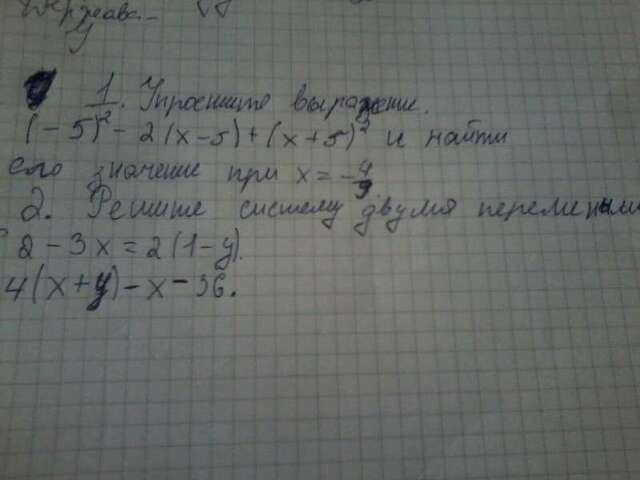 1. Упростите выражение.
(-5)² - 2(x-5) + (x+5)² и найти
его значение при x = -4/9
2. Решите систему двумя переменными
2 - 3x = 2(1-y).
4(x+y) - x - 36.